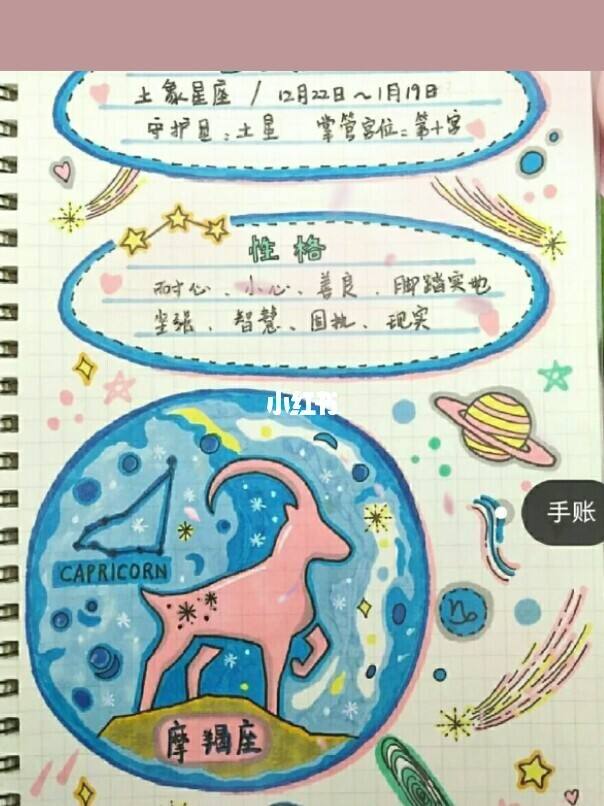 土象星座 / 12月22日～1月19日
守护星：土星 掌管宫位：第十宫
性格
耐心、小心、善良、脚踏实地
坚强、智慧、固执、现实
小红书
手账
CAPRICORN
摩羯座